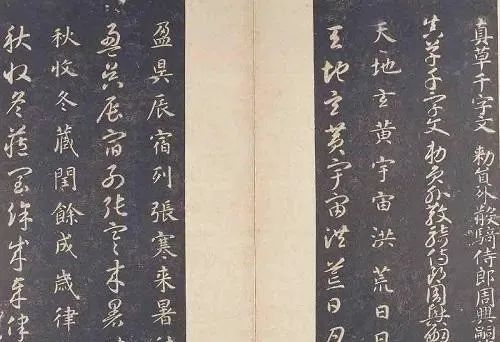 真草千字文 勅員外散騎侍郎周興嗣
真草千字文 勅員外散騎侍郎周興嗣
天地玄黄宇宙洪荒日月
天地玄黄宇宙洪荒日月
盈昃辰宿列張寒来暑
盈昃辰宿列張寒来暑
秋收冬藏閏餘成歲律
秋收冬藏閏餘成歲律